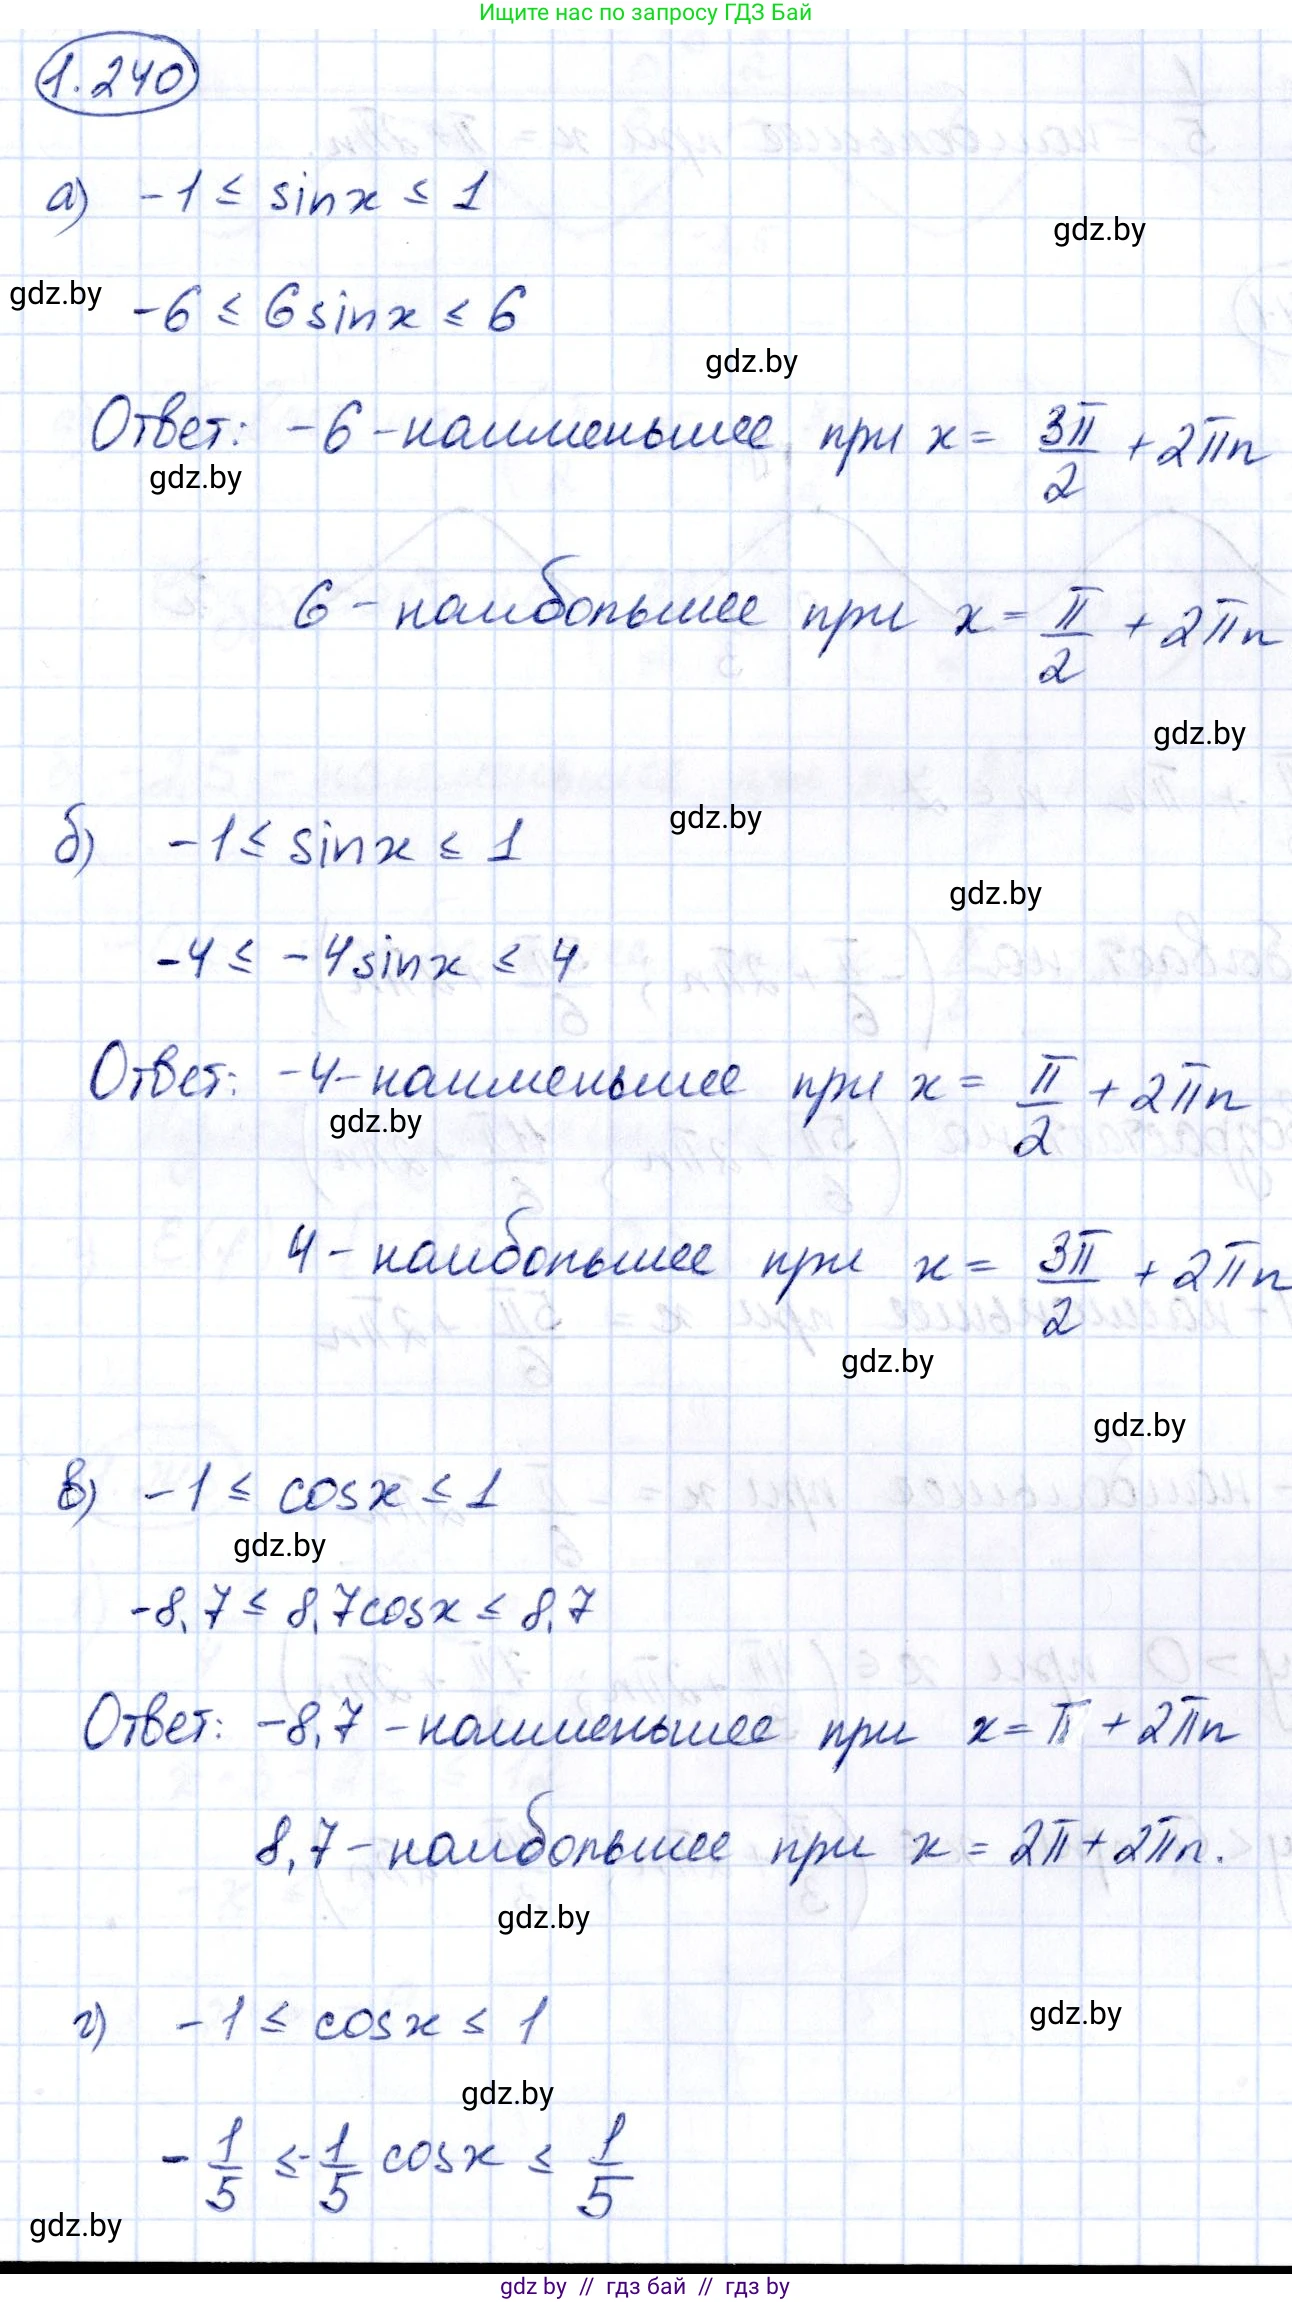 Ищите нас по запросу ГДЗ Бай
1.240
а) -1 ≤ sinx ≤ 1
gdz.by
gdz.by
-6 ≤ 6sinx ≤ 6
gdz.by
Ответ: -6 - наименьшее при x = 3π/2 + 2πn
gdz.by
6 - наибольшее при x = π/2 + 2πn
gdz.by
gdz.by
б) -1 ≤ sinx ≤ 1
gdz.by
-4 ≤ -4sinx ≤ 4
Ответ: -4 - наименьшее при x = π/2 + 2πn
gdz.by
4 - наибольшее при x = 3π/2 + 2πn
gdz.by
gdz.by
в) -1 ≤ cosx ≤ 1
gdz.by
-8,7 ≤ 8,7cosx ≤ 8,7
Ответ: -8,7 - наименьшее при x = π + 2πn
8,7 - наибольшее при x = 2π + 2πn.
gdz.by
г) -1 ≤ cosx ≤ 1
gdz.by
gdz.by
-1/5 ≤ -1/5 cosx ≤ 1/5
gdz.by
gdz by // гдз бай // гдз by